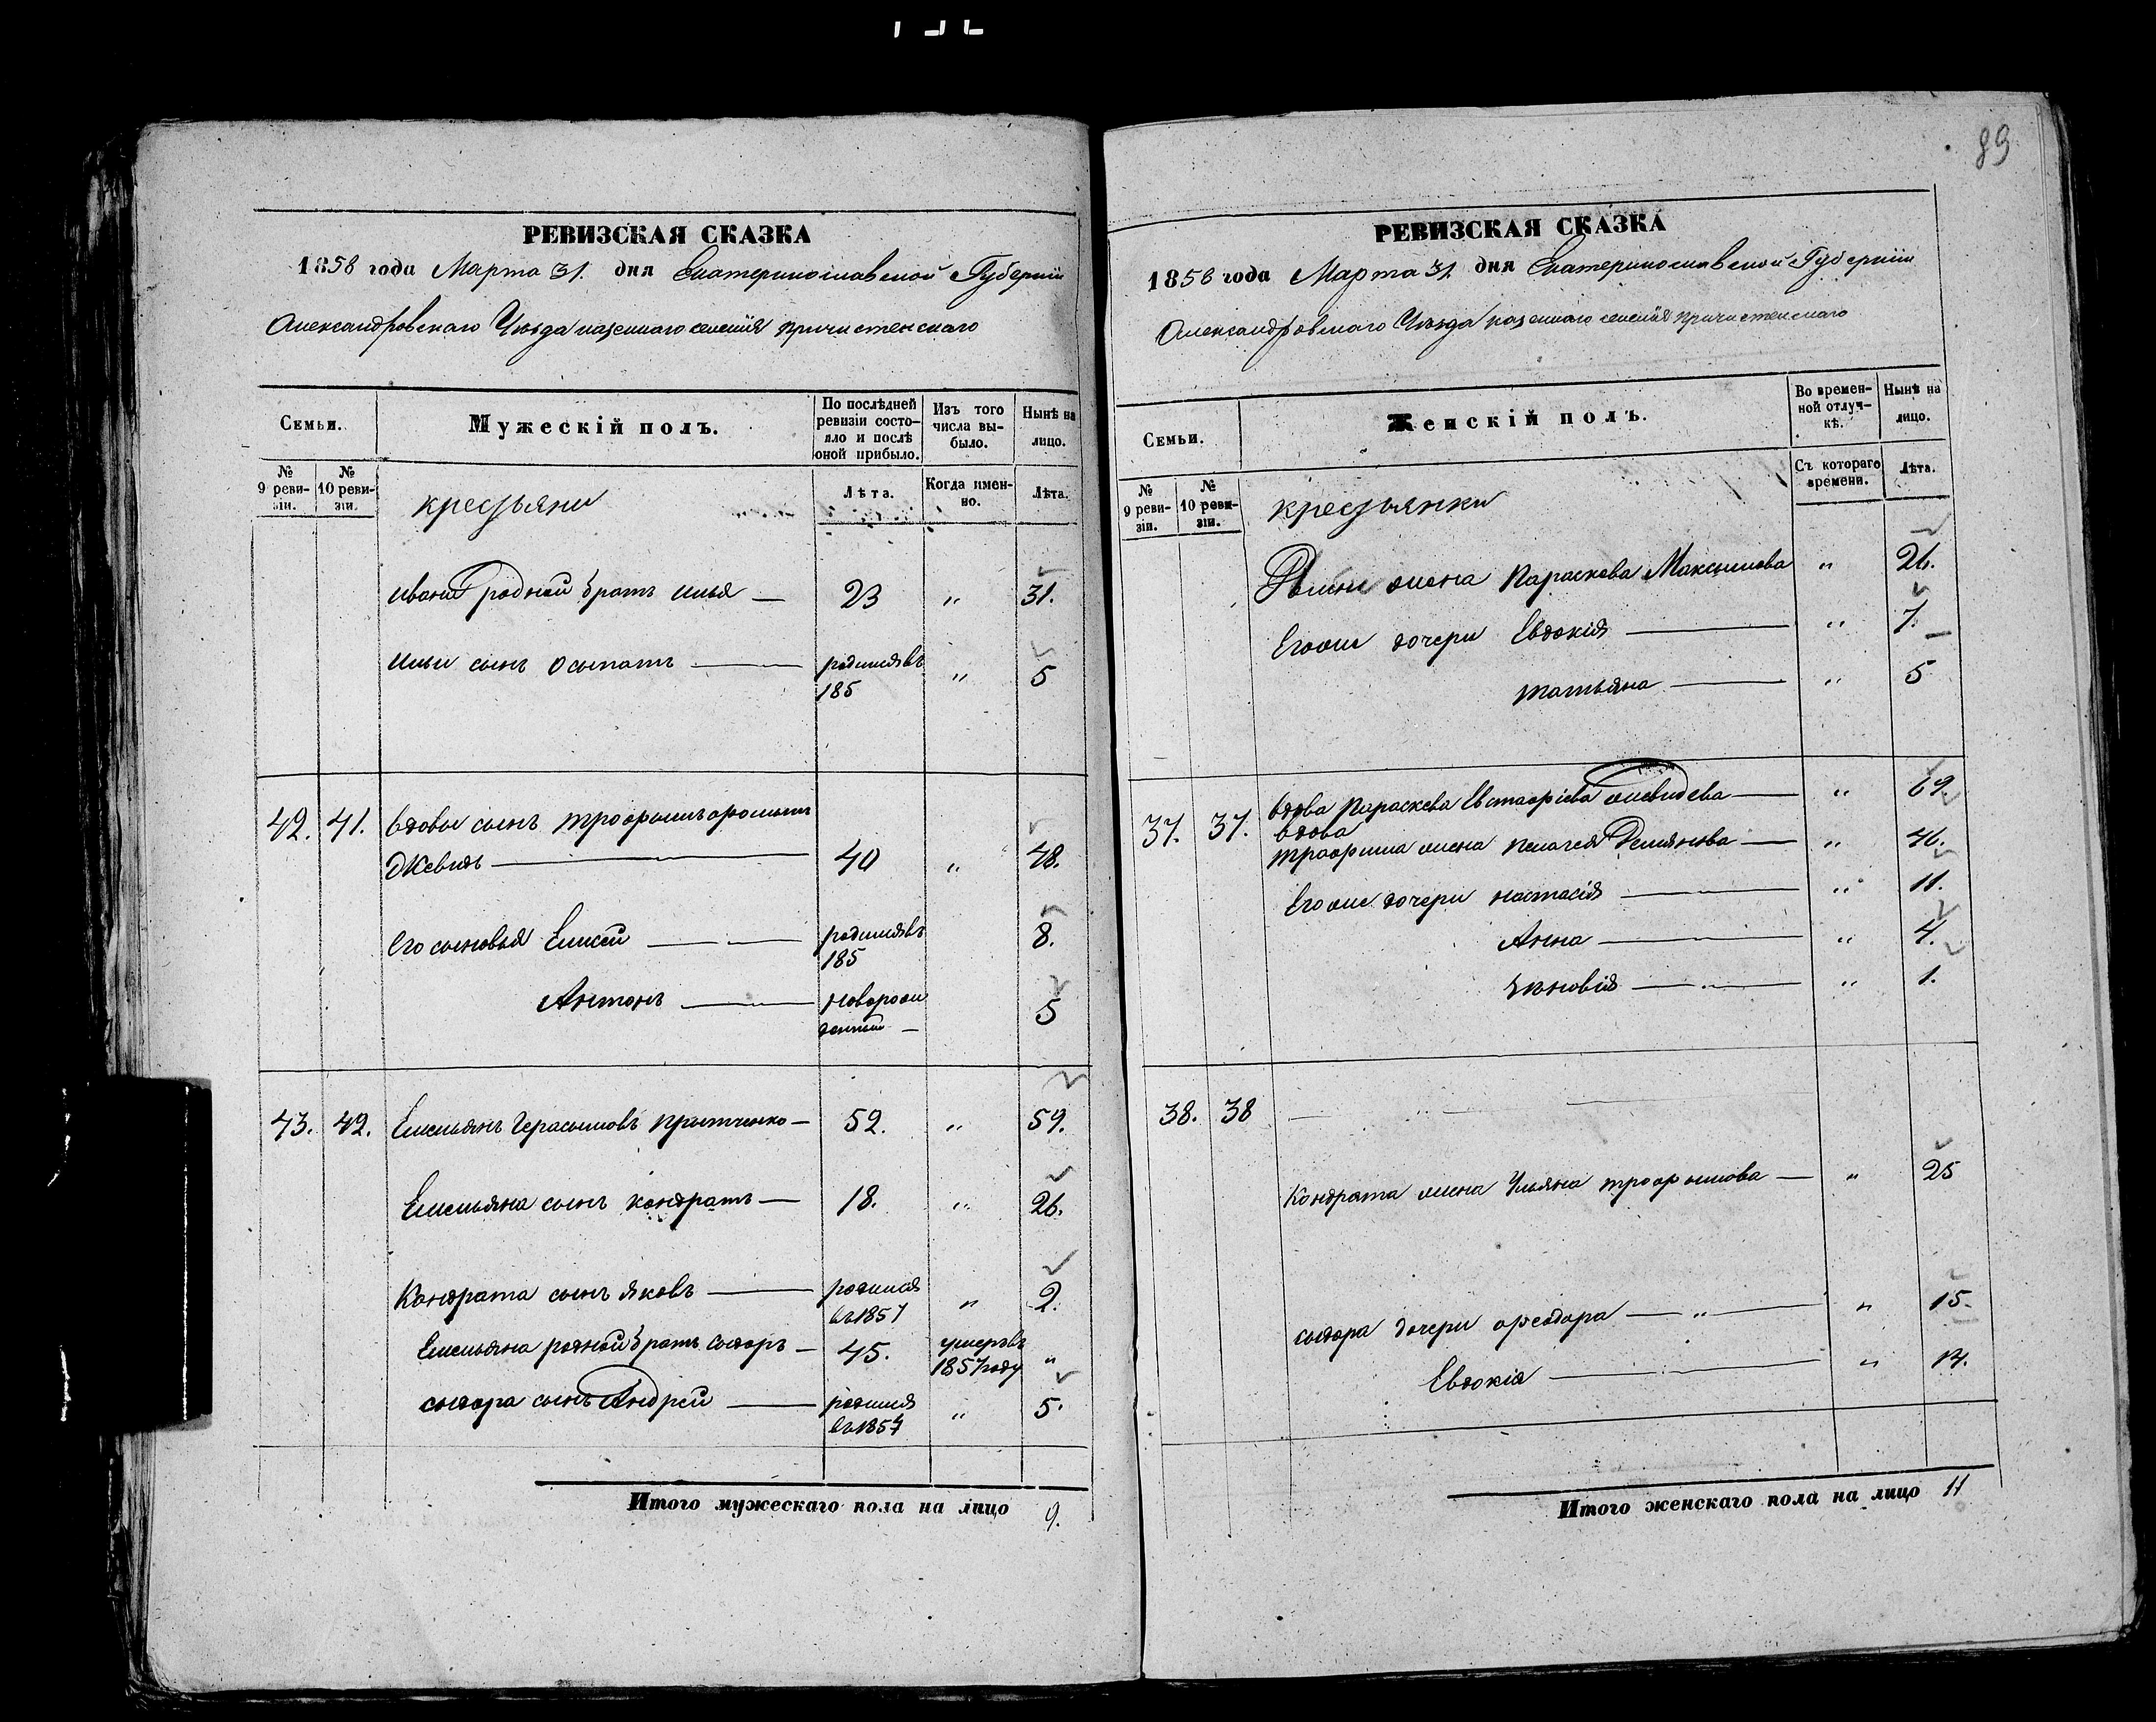 89
РЕВИЗСКАЯ СКАЗКА
1858 года Марта 31. дня Екатеринославской Губерніи
Александровскаго Уѣзда казеннаго селенія причистенскаго
Семьи.
Мужескій полъ.
По послѣдней ревизіи состояло и послѣ оной прибыло.
Изъ того числа выбыло.
Нынѣ на лицо.
№ 9 ревизіи.
№ 10 ревизіи.
крестьяни
Лѣта.
Когда именно.
Лѣта.
ивана родной братъ илья — 23 " 31.
ильи сынъ — родился въ 185 " 5
42. 41. вдовы сынъ
— 40 " 48.
его сыновья Елисей — родился въ 185 8.
Антонъ — новорожденный — 5
43. 42. Емельянъ Герасимовъ — 52. " 59.
Емельяна сынъ кондратъ — 18. " 26.
Кондрата сынъ яковъ — родился въ 1857 " 2.
Емельяна родной братъ сидоръ — 45. умеръ въ 1857 году "
сидора сынъ Андрей — родился въ 1854 " 5.
Итого мужескаго пола на лицо 9.
РЕВИЗСКАЯ СКАЗКА
1858 года Марта 31 дня Екатеринославской Губерніи
Александровскаго Уѣзда казеннаго селенія причистенскаго
Семьи.
Женскій полъ.
Во временной отлучкѣ.
Нынѣ на лицо.
№ 9 ревизіи.
№ 10 ревизіи.
крестьянки
Съ котораго времени.
Лѣта.
жена Параскева Максимова " 26.
Его же дочери Евдокія — " 7.
татьяна — " 5
37. 37. вдова Параскева Евстафіева — " 69.
вдова
трофима жена пелагея Демянова — " 46.
Его же дочери настасія — " 11.
Анна — " 4.
зѣновія — " 1.
38. 38 —
Кондрата жена Ульяна трофимова — " 25
сидора дочери феодора — " — " 15.
Евдокія — "
Итого женскаго пола на лицо 11